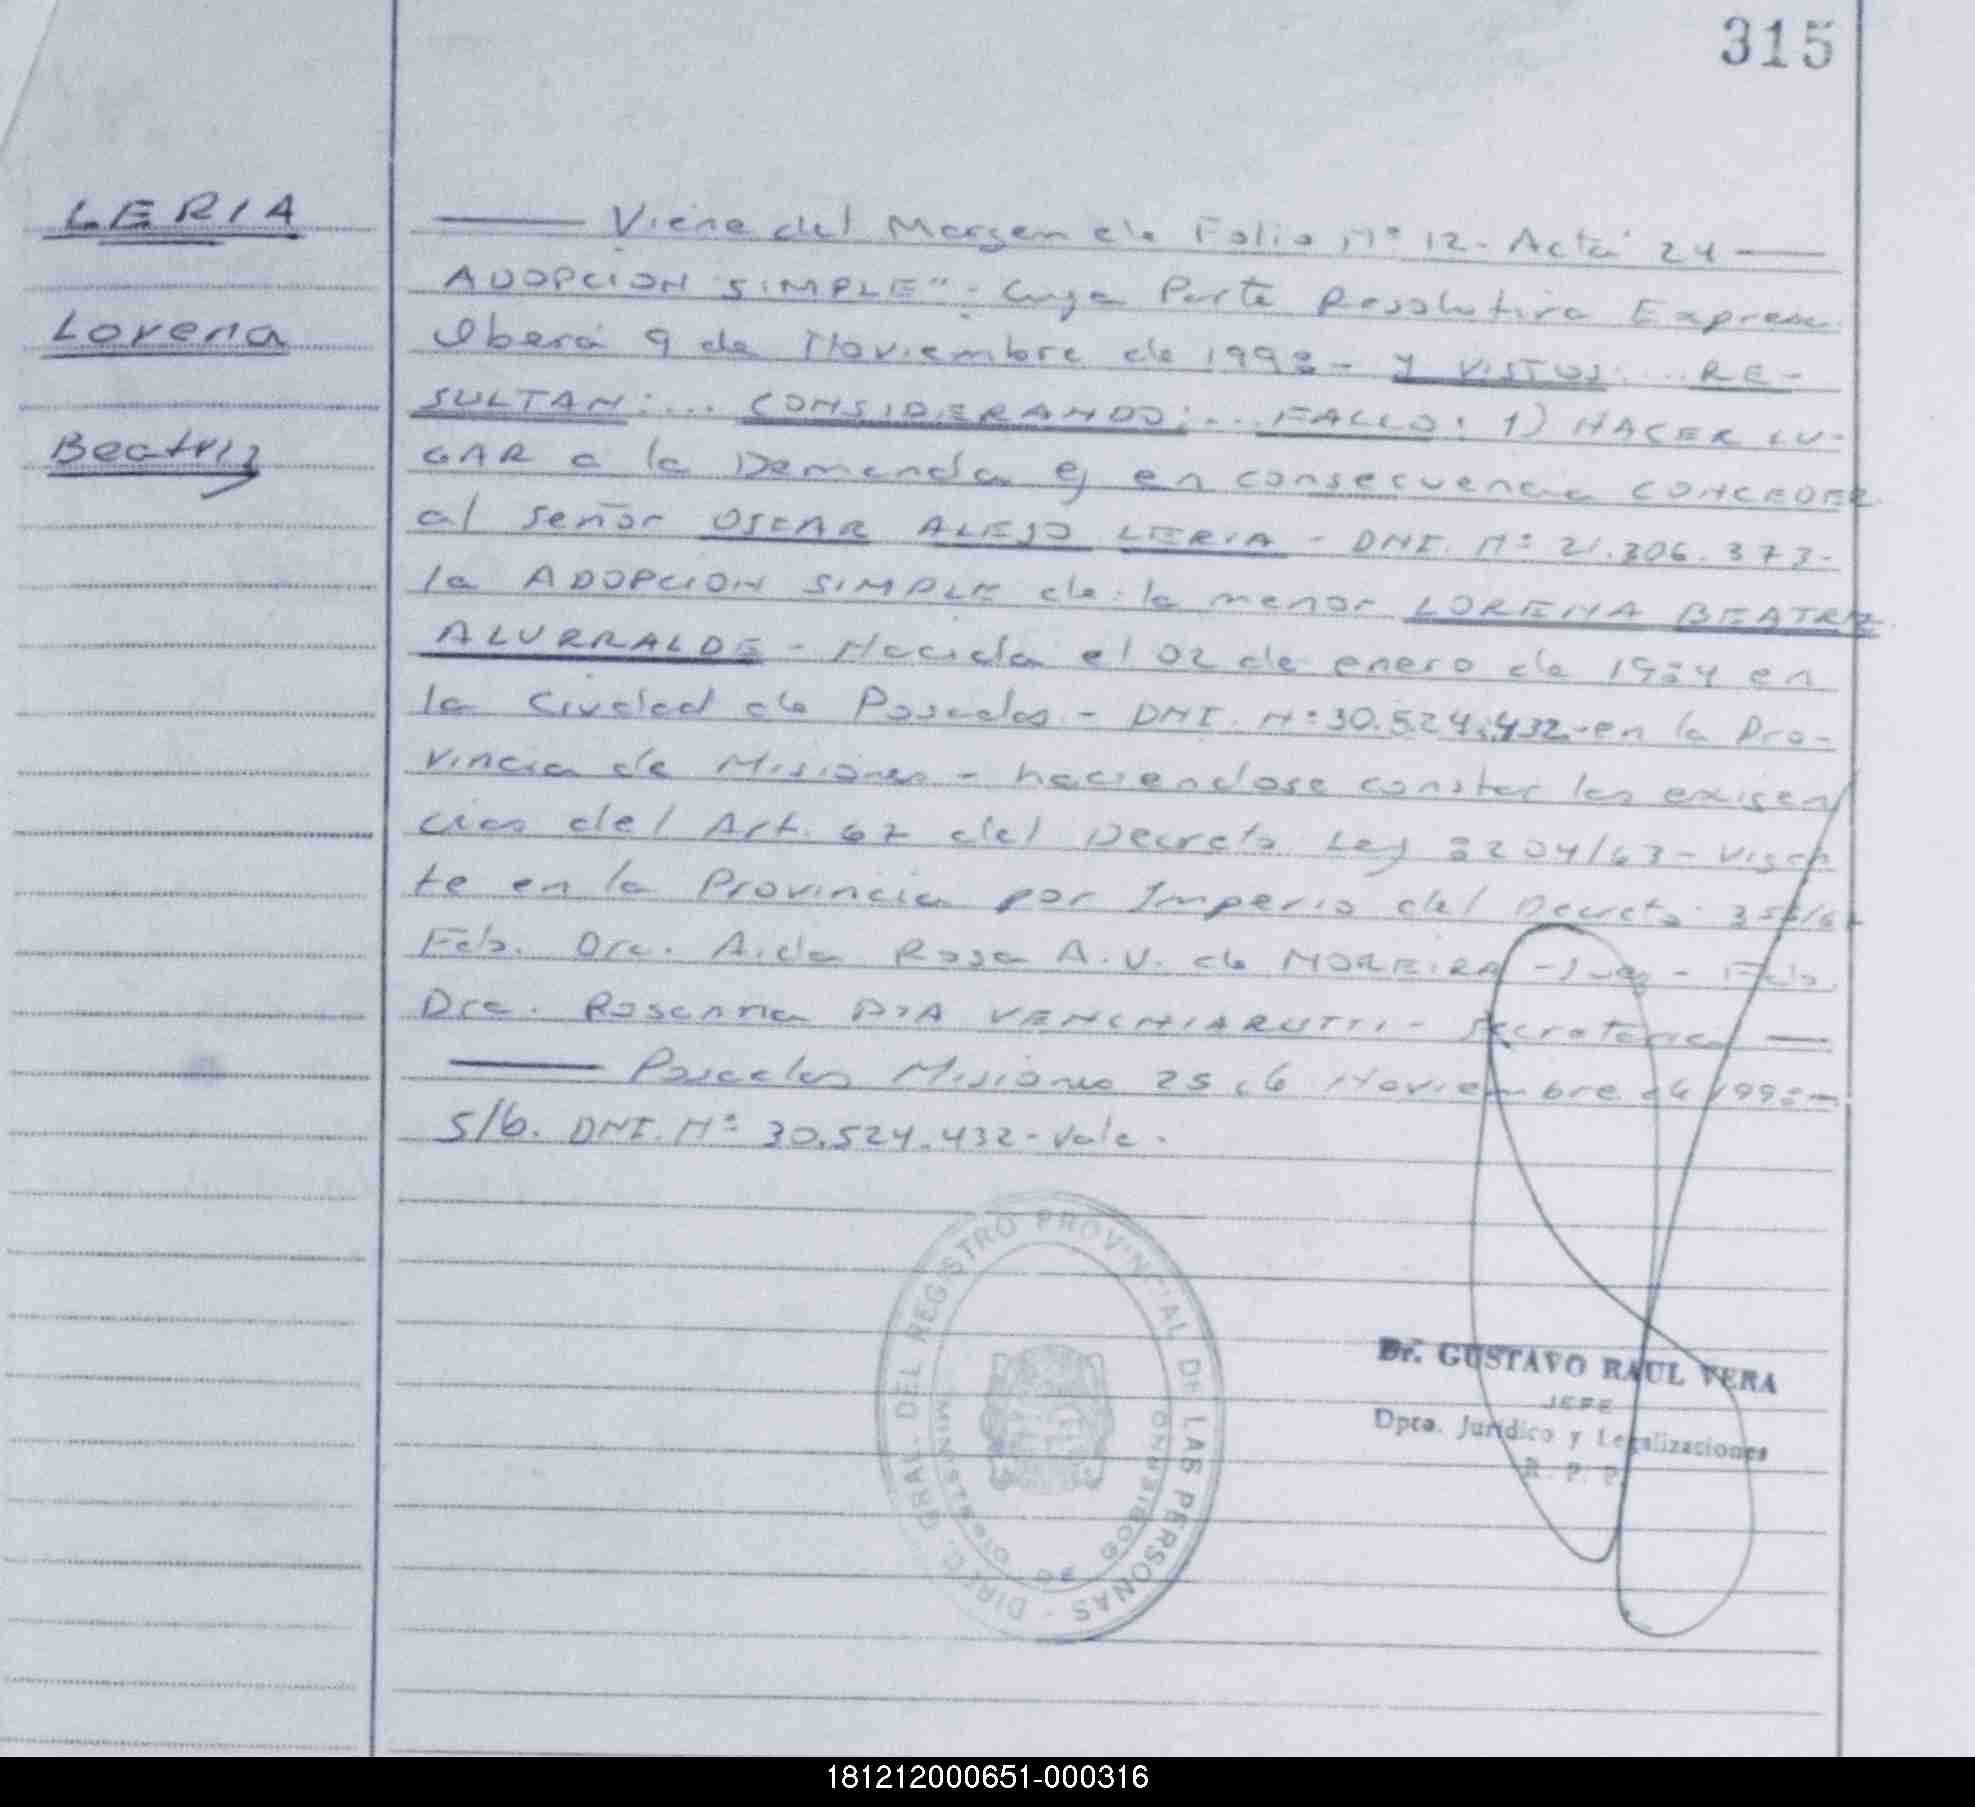 315
LERIA
Lorena
Beatriz
Viene del Margen de Folio Nº 12 - Acta 24
ADOPCION SIMPLE" - Cuya Parte Resolutiva Expresa
Oberá 9 de Noviembre de 1998 - Y VISTOS: ... RE-
SULTAN: ... CONSIDERANDO: ... FALLO: 1) HACER LU-
GAR a la Demanda y en consecuencia CONCEDER
al señor OSCAR ALEJO LERIA - DNI. Nº 21.306.373-
la ADOPCION SIMPLE de la menor LORENA BEATRIZ
ALURRALDE - Nacida el 02 de enero de 1984 en
la Ciudad de Posadas - DNI. Nº 30.524.432- en la Pro-
vincia de Misiones - haciendose constar las exigen
cias del Art. 67 del Decreto Ley 8204/63 - Vigen
te en la Provincia por Imperio del Decreto
Fdo. Dra. Aida Rosa A.V. de MOREIRA - Juez - Fdo
Dra. Rosanna PIA VENCHIARUTTI - Secretaria
Posadas Misiones 25 de Noviembre de 1998-
S/b. DNI. Nº 30.524.432 - Vale.
DIREC. GRAL. DEL REGISTRO PROVINCIAL DE LAS PERSONAS
MINISTERIO DE GOBIERNO
Dr. GUSTAVO RAUL VERA
JEFE
Dpto. Jurídico y Legalizaciones
R. P. P.
181212000651-000316